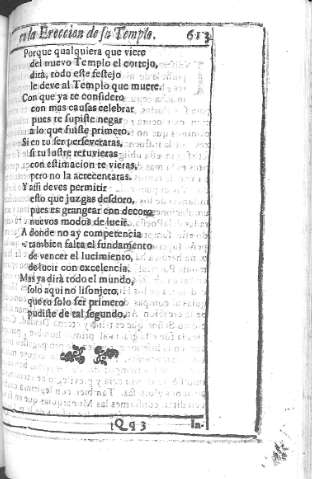 en la Ereccion de su Templo. 613
Porque qualquiera que viere
del nuevo Templo el cortejo,
dirà, todo este festejo
le deve al Templo que muere.
Con que ya te considero
con mas causas celebrar
pues te supiste negar
a lo que fuiste primero.
Si en tu ser perseveraras,
si tu lustre retuvieras
con estimacion te vieras,
pero no la acrecentaras.
Y assi deves permitir
esto que juzgas desdoro,
pues es grangear con decoro
nuevos modos de lucir.
A donde no ay competencia
tambien falta el fundamento
de vencer el lucimiento,
de lucir con excelencia.
Mas ya dirà todo el mundo,
solo aqui no lisonjero,
que tu solo ser primero
pudiste de tal segundo.
In-